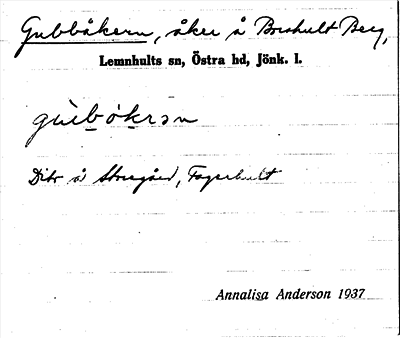 Gubbåkern, åker å Boshult Berg,
Lemnhults sn, Östra hd, Jönk. l.
gùb̲ók̲rən
Dito å Storegård, Fagerhult
Annalisa Anderson 1937